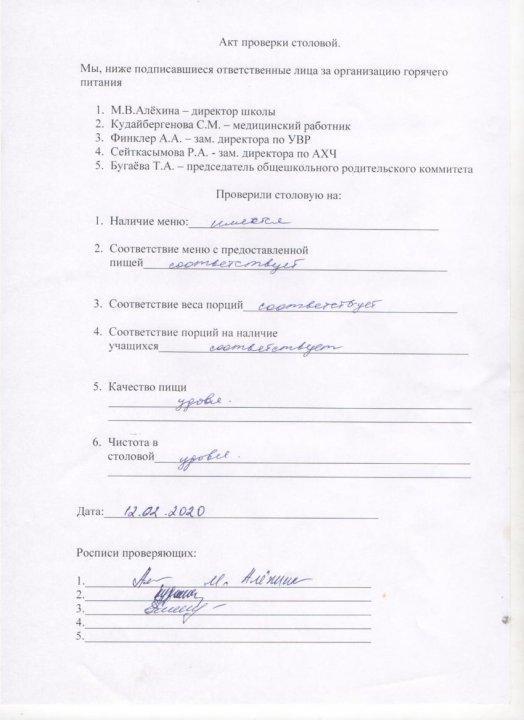 Акт проверки столовой.
Мы, ниже подписавшиеся ответственные лица за организацию горячего
питания
1. М.В.Алёхина – директор школы
2. Кудайбергенова С.М. – медицинский работник
3. Финклер А.А. – зам. директора по УВР
4. Сейткасымова Р.А. - зам. директора по АХЧ
5. Бугаёва Т.А. – председатель общешкольного родительского коммитета
Проверили столовую на:
1. Наличие меню: имеется
2. Соответствие меню с предоставленной
пищей соответствует
3. Соответствие веса порций соответствует
4. Соответствие порций на наличие
учащихся соответствует
5. Качество пищи
удовл.
6. Чистота в
столовой удовл.
Дата: 12.02.2020
Росписи проверяющих:
1. М. Алёхина
2.
3.
4.
5.